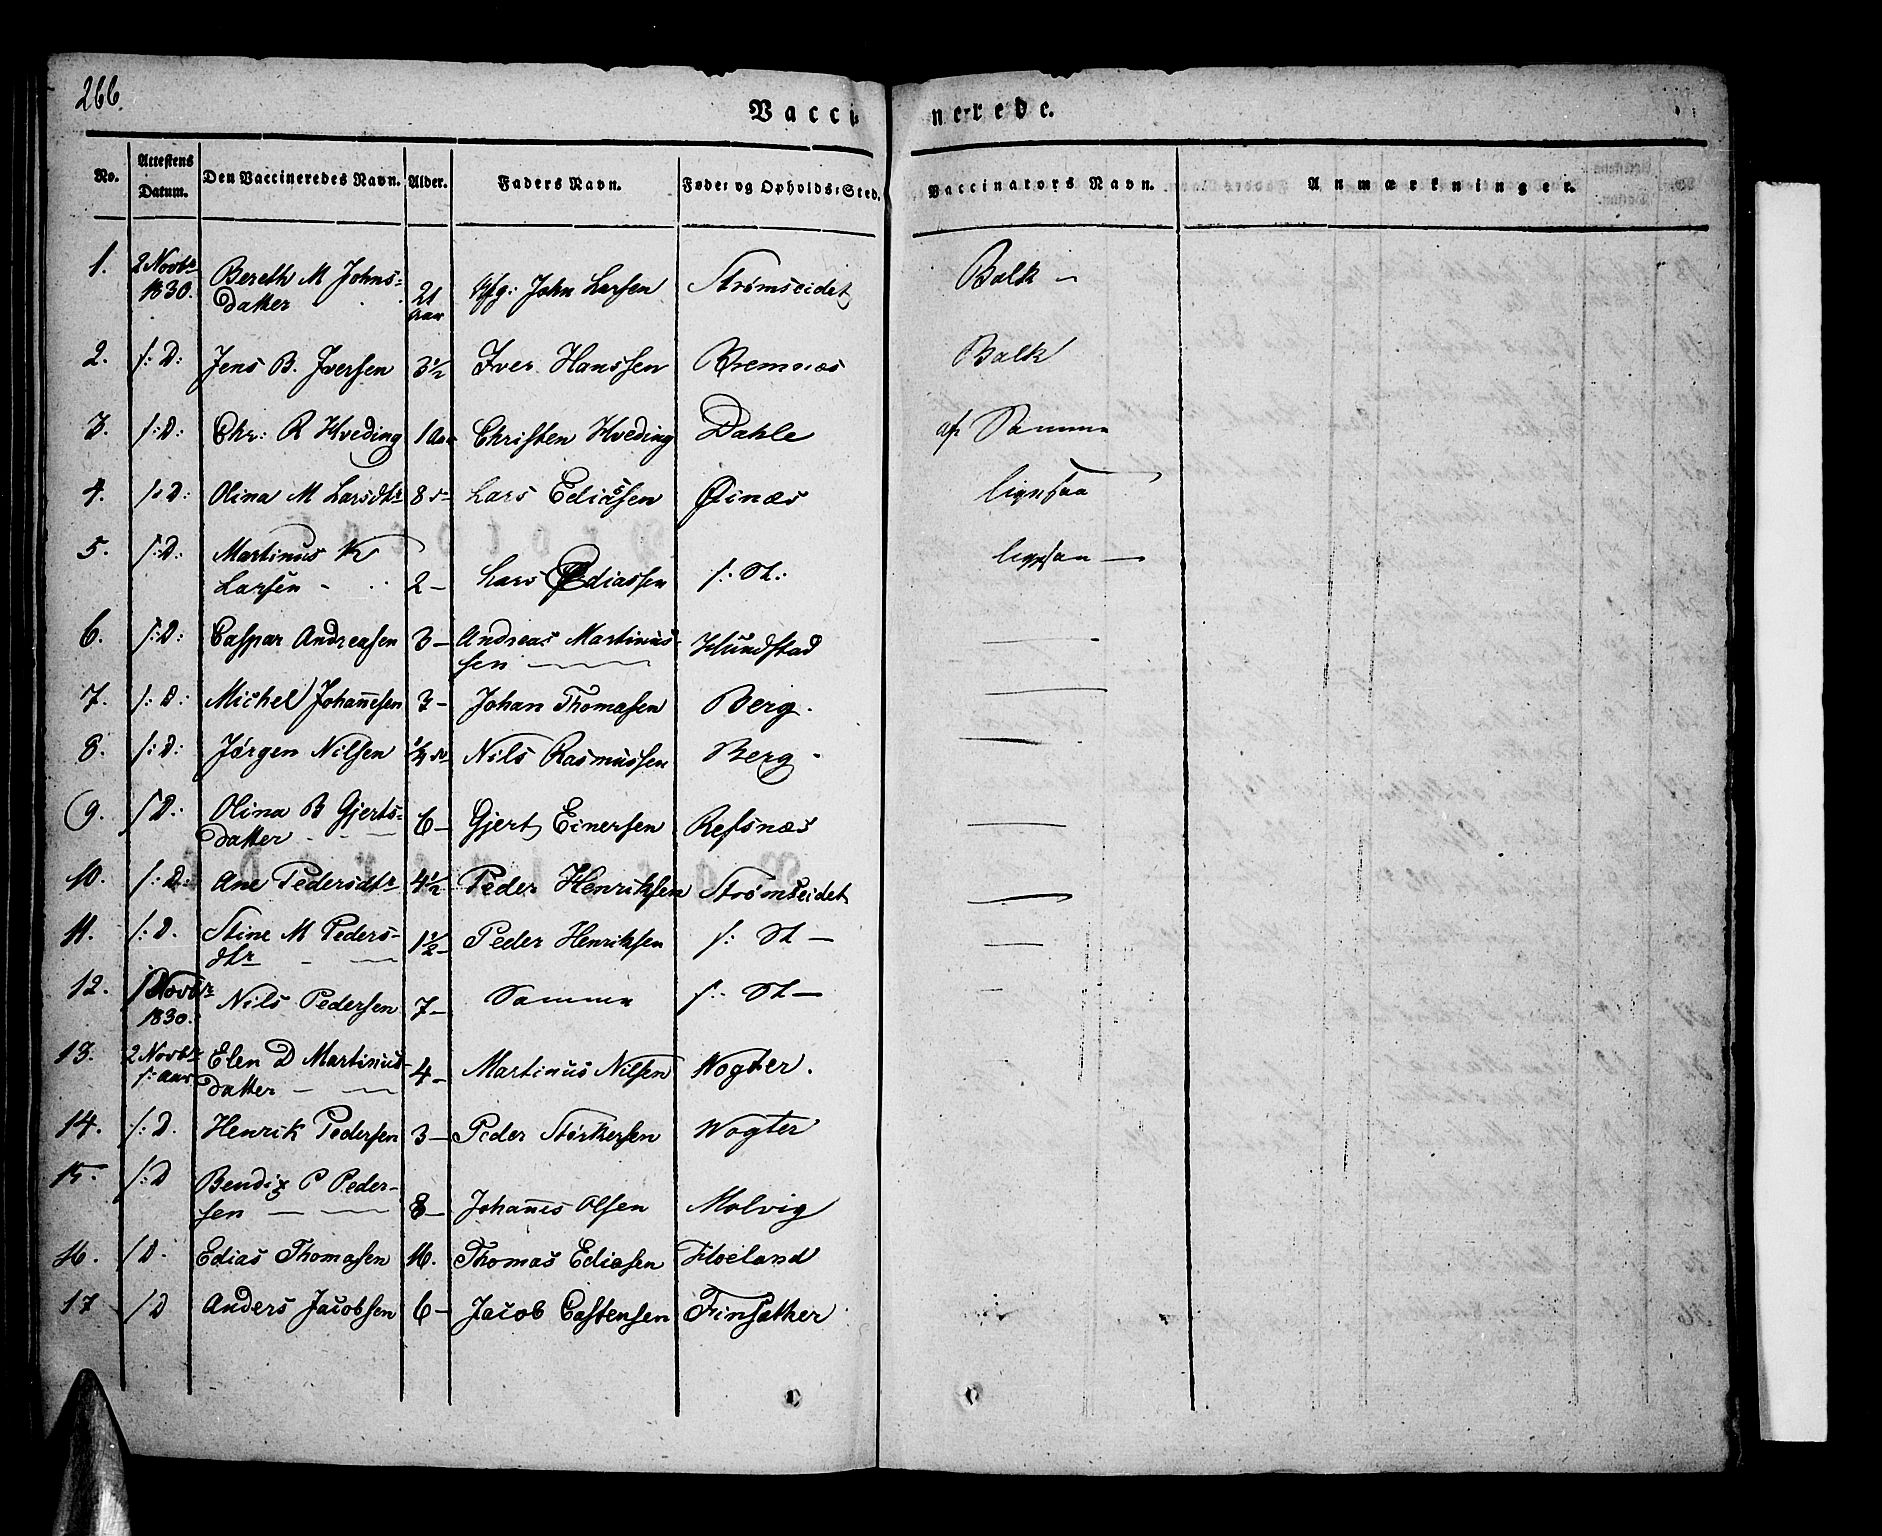 266.
Vaccinerede.
No. Attestens Datum. Den Vaccineredes Navn. Alder. Faders Navn. Føde- og Opholds-Sted. Vaccinators Navn. Anmærkninger.
1. 2 Novbr 1830. Bereth M Johns-datter 21 Aar John Larsen Strømseidet Balk –
2. s: D: Jens B. Iversen 3½ Iver Hanssen Bremnæs Balk
3. s: D: Chr: R Hveding 1 Aar Christen Hveding Dahle af Samme
4. s: D: Olina M Larsdtr 8 Lars Ediassen Øinæs ligesaa
5. s: D: Martinus K Larsen – 2 – Lars Ediassen s: St: ligesaa —
6. s: D: Caspar Andreasen 3 – Andreas Martinus-sen — Hundstad —
7. s: D: Michel Johannesen 3 – Johan Thomasen Berg. —
8. s: D: Jørgen Nilsen ½ Nils Rasmussen Berg – —
9. s D: Olina B Gjerts-datter – – 6 – Gjert Einersen Refsnæs —
10. s: D: Ane Pedersdtr 4½ Peder Henriksen Strømseidet —
11. s: D. Stine M Peders-dtr – — 1½ – Peder Henriksen s: St – —
12. Novbr 1830. Nils Pedersen 7 – Samme s: St – —
13. 2 Novbr s: Aar Elen D Martinus-datter – — 4 – Martinus Nilsen Wogter. 
14. s: D. Henrik Pedersen 3 – Peder Størkersen Wogter
15. s: D Bendix P Peder-sen — — 8 – Johannes Olsen Molvig
16. s D. Edias Thomasen 16. Thomas Ediasen
17 s D Anders Jacobsen 6 – Jacob Castensen Finsæther